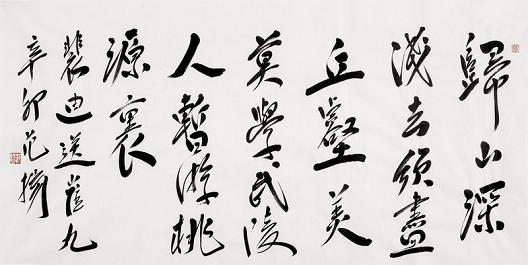 歸山深
淺去須盡
丘壑美
莫學武陵
人暫游桃
源裏
裴迪送崔九
辛卯范揚